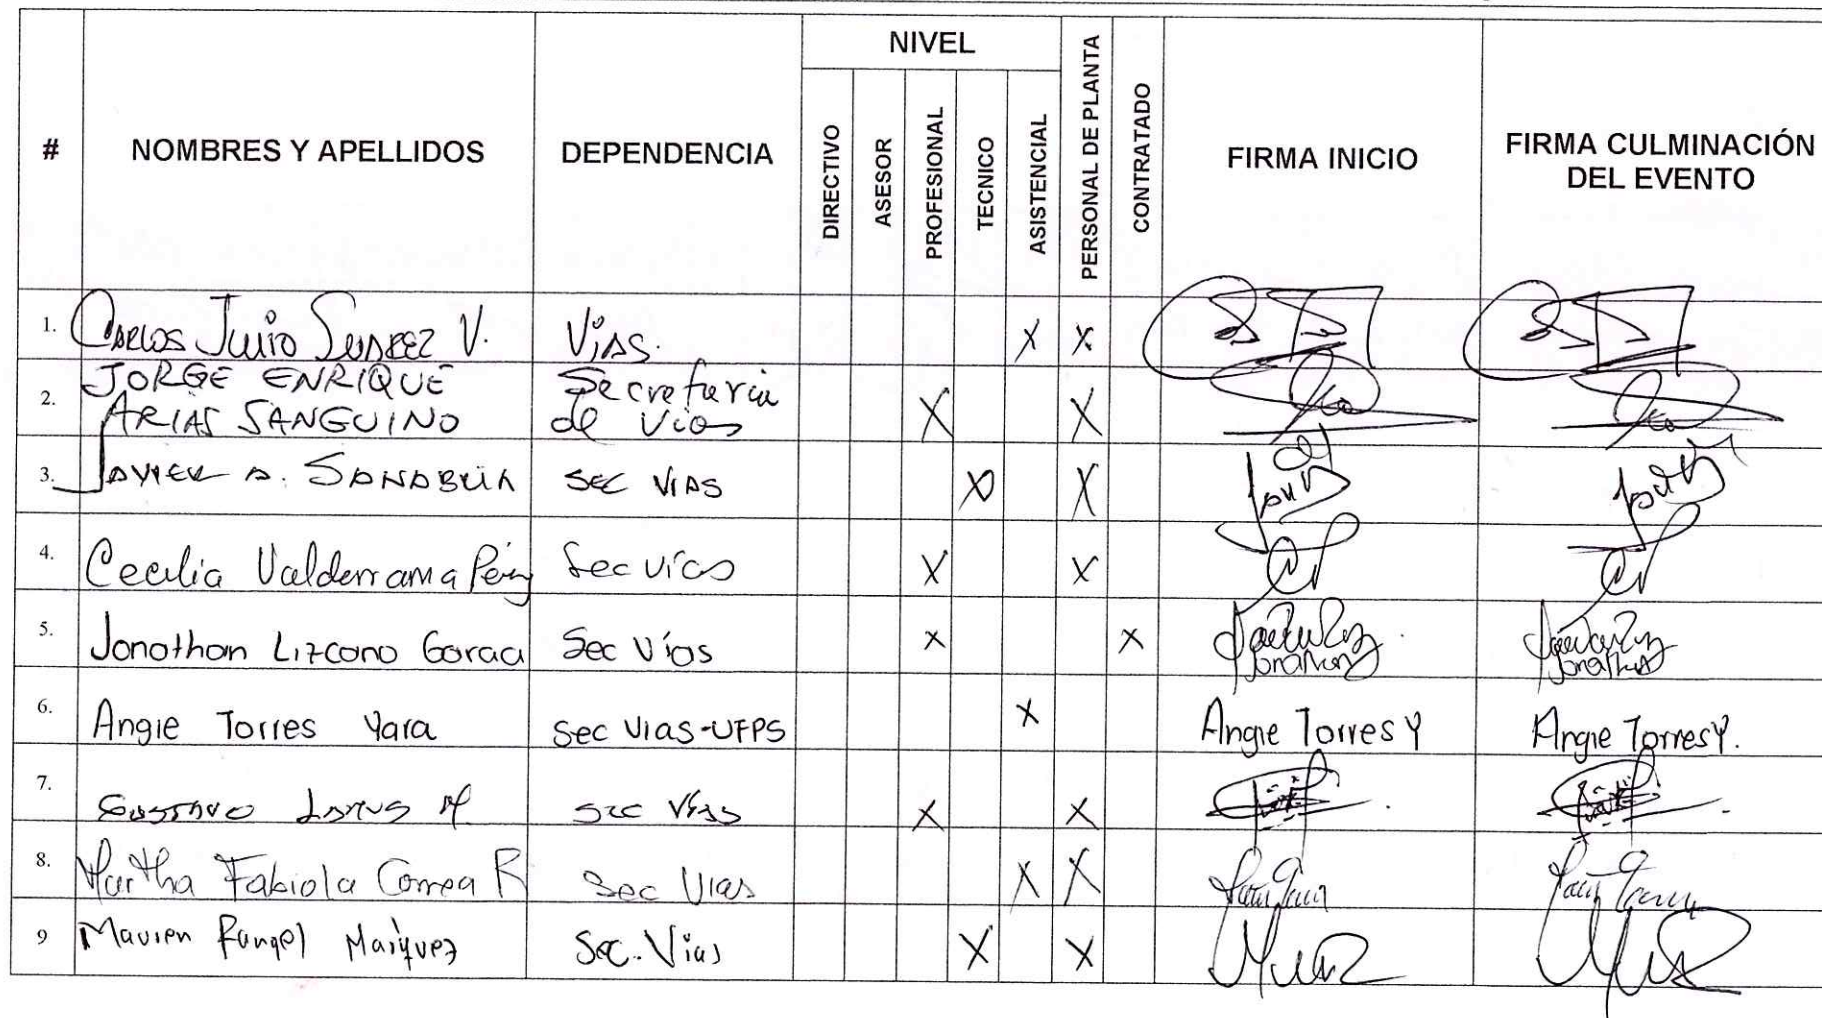 NIVEL
# NOMBRES Y APELLIDOS DEPENDENCIA DIRECTIVO ASESOR PROFESIONAL TECNICO ASISTENCIAL PERSONAL DE PLANTA CONTRATADO FIRMA INICIO FIRMA CULMINACIÓN
DEL EVENTO
1. CARLOS JULIO SUAREZ V. VIAS. X X
JORGE ENRIQUE Secretaria
2. ARIAS SANGUINO de Vias X X
3. JAVIER A. SANABRIA SEC VIAS X X
4. Cecilia Valderrama Pérez Sec vías X X
5. Jonathan Lizcano Garcia Sec Vías X X
6. Angie Torres Yara Sec Vias-UFPS X Angie Torres Y Angie Torres Y.
7. GUSTAVO SEC VIAS X X
8. Martha Fabiola Correa R Sec Vias X X
9 Rangel Marquez Sec. Vias X X